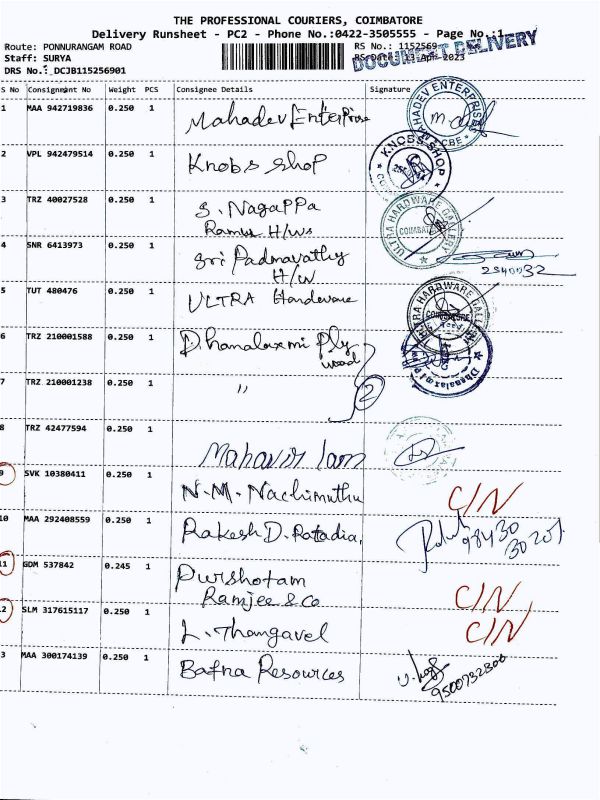 THE PROFESSIONAL COURIERS, COIMBATORE
Delivery Runsheet - PC2 - Phone No.:0422-3505555 - Page No.:1
Route: PONNURANGAM ROAD
RS No.: 1152569
Staff: SURYA
RS Date: 13-Apr-2023
DOCUMENT DELIVERY
DRS No.: DCJB115256901
S No Consignment No Weight PCS Consignee Details Signature
1 MAA 942719836 0.250 1 Mahadev Enterprise
MAHADEV ENTERPRISES CBE
2 VPL 942479514 0.250 1 Knobs shop
KNOBS SHOP
3 TRZ 40027528 0.250 1 S. Nagappa
Ramu H/ws
ULTRA HARDWARE GALLERY
4 SNR 6413973 0.250 1 Sri Padmavathy
H/W
5 TUT 480476 0.250 1 ULTRA Hardware
ULTRA HARDWARE GALLERY
COIMBATORE
6 TRZ 210001588 0.250 1 Dhanalaxmi Ply
wood
7 TRZ 210001238 0.250 1 "
2
8 TRZ 42477594 0.250 1 Mahavir lam
9 SVK 10380411 0.250 1 N.M. Nachimuthu C/N
10 MAA 292408559 0.250 1 Rakesh D. Rotadia,
98430
30201
11 GDM 537842 0.245 1 Purshotam
Ramjee & Co C/N
12 SLM 317615117 0.250 1 L. Thangavel C/N
3 MAA 300174139 0.250 1 Bafna Resources
9500732300